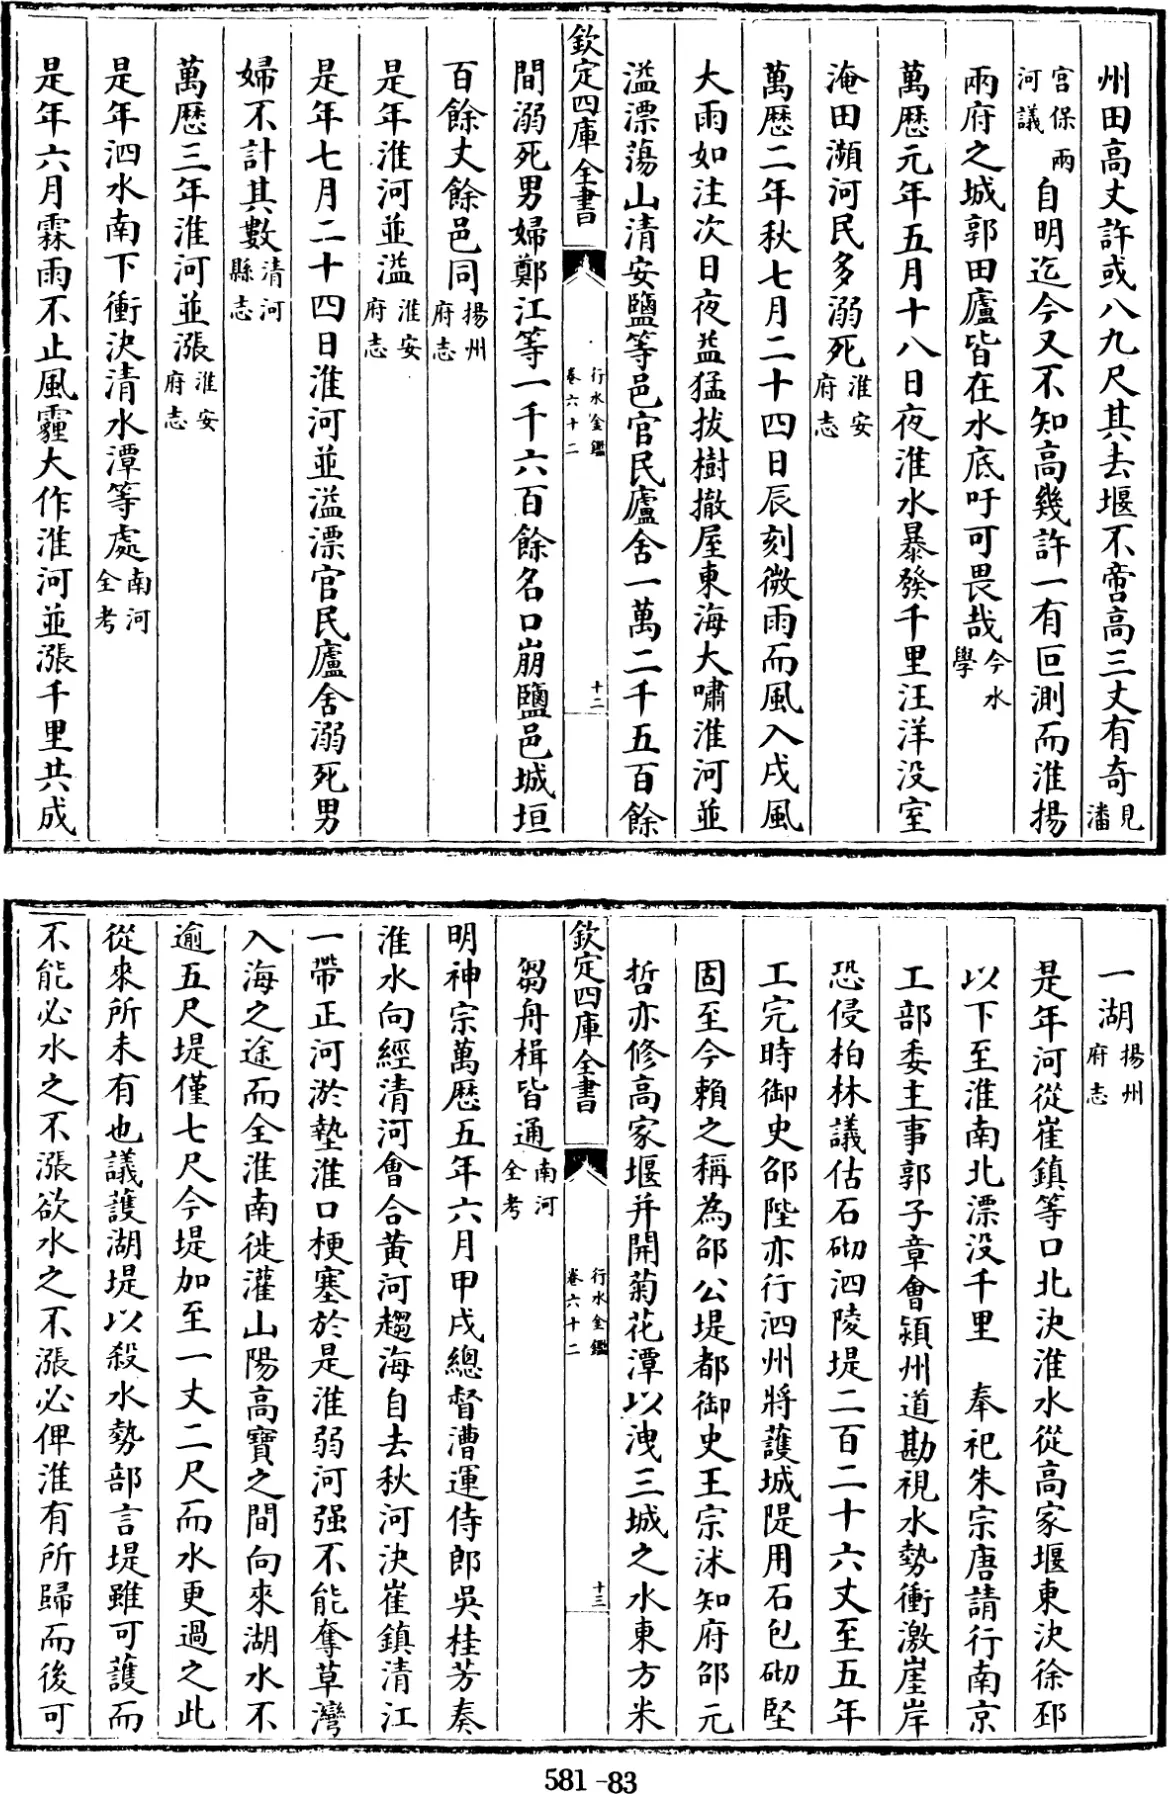 州田高丈許或八九尺其去堰不啻高三丈有奇見潘
宫保兩河議自明迄今又不知高幾許一有叵測而淮揚
兩府之城郭田廬皆在水底吁可畏哉今水學
萬歷元年五月十八日夜淮水暴發千里汪洋没室
淹田瀕河民多溺死淮安府志
萬歷二年秋七月二十四日辰刻微雨而風入戌風
大雨如注次日夜益猛拔樹撤屋東海大嘯淮河並
溢漂蕩山清安鹽等邑官民廬舍一萬二千五百餘
欽定四庫全書 行水金鑑 卷六十二 十二
間溺死男婦鄭江等一千六百餘名口崩鹽邑城垣
百餘丈餘邑同揚州府志
是年淮河並溢淮安府志
是年七月二十四日淮河並溢漂官民廬舍溺死男
婦不計其數清河縣志
萬歷三年淮河並漲淮安府志
是年泗水南下衝決清水潭等處南河全考
是年六月霖雨不止風霾大作淮河並漲千里共成
一湖揚州府志
是年河從崔鎮等口北決淮水從高家堰東決徐邳
以下至淮南北漂没千里 奉祀朱宗唐請行南京
工部委主事郭子章會潁州道勘視水勢衝激崖岸
恐侵柏林議估石砌泗陵堤二百二十六丈至五年
工完時御史邵陛亦行泗州將護城隄用石包砌堅
固至今賴之稱為邵公堤都御史王宗沐知府邵元
哲亦修高家堰并開菊花潭以洩三城之水東方米
欽定四庫全書 行水金鑑 卷六十二 十三
芻舟楫皆通南河全考
明神宗萬歷五年六月甲戌總督漕運侍郎吳桂芳奏
淮水向經清河會合黄河趨海自去秋河決崔鎮清江
一帶正河淤墊淮口梗塞於是淮弱河强不能奪草灣
入海之途而全淮南徙灌山陽高寶之間向來湖水不
逾五尺堤僅七尺今堤加至一丈二尺而水更過之此
從來所未有也議護湖堤以殺水勢部言堤雖可護而
不能必水之不漲欲水之不漲必俾淮有所歸而後可
581-83